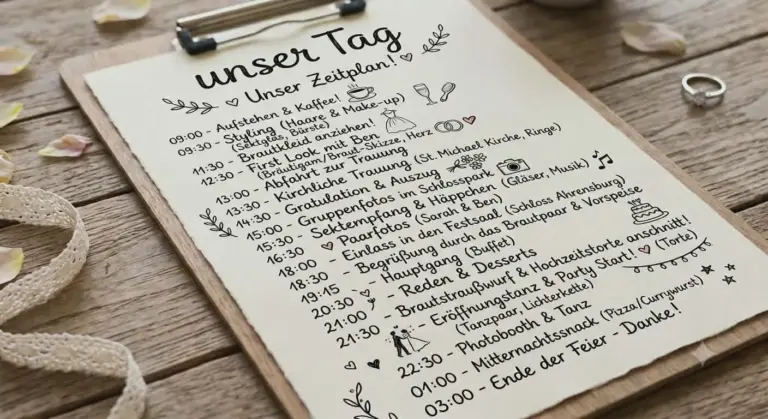 unser Tag
Unser Zeitplan!
09:00 - Aufstehen & Kaffee!
09:30 - Styling (Haare & Make-up)
(Sektglas, Bürste)
11:30 - Brautkleid anziehen!
12:30 - First Look mit Ben
(Bräutigam/Braut-Skizze, Herz)
13:00 - Abfahrt zur Trauung
13:30 - Kirchliche Trauung (St. Michael Kirche, Ringe)
14:30 - Gratulation & Auszug
15:00 - Gruppenfotos im Schlosspark
15:30 - Sektempfang & Häppchen (Gläser, Musik)
16:30 - Paarfotos (Sarah & Ben)
18:00 - Einlass in den Festsaal (Schloss Ahrensburg)
18:30 - Begrüßung durch das Brautpaar & Vorspeise
19:15 - Hauptgang (Buffet)
20:30 - Reden & Desserts
21:00 - Brautstraußwurf & Hochzeitstorte anschnitt! (Torte)
21:30 - Eröffnungstanz & Party Start!
(Tanzpaar, Lichterkette)
22:30 - Photobooth & Tanz
01:00 - Mitternachtssnack (Pizza/Currywurst)
03:00 - Ende der Feier - Danke!